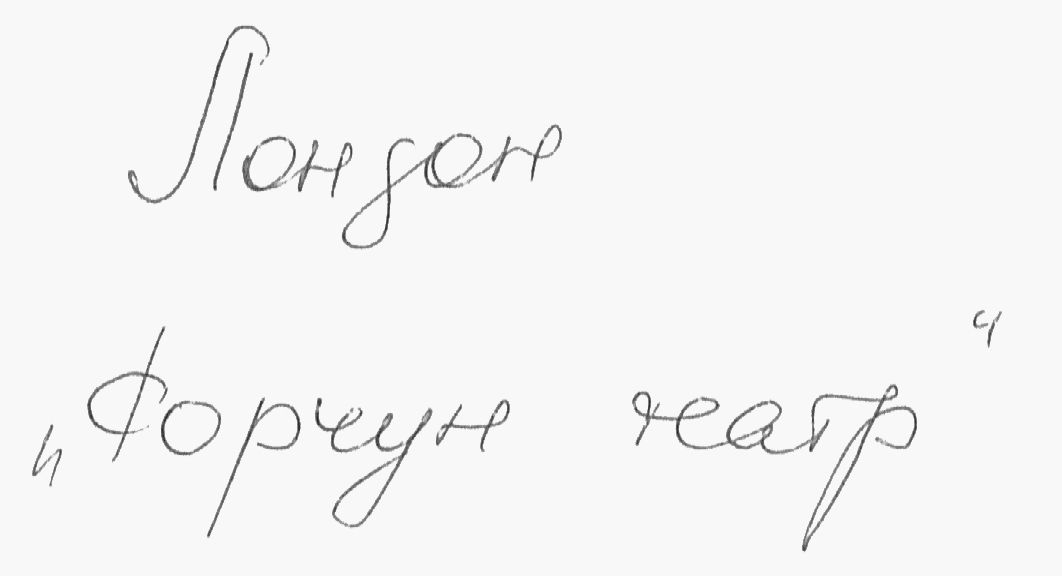 Лондон
„Форчун театр“